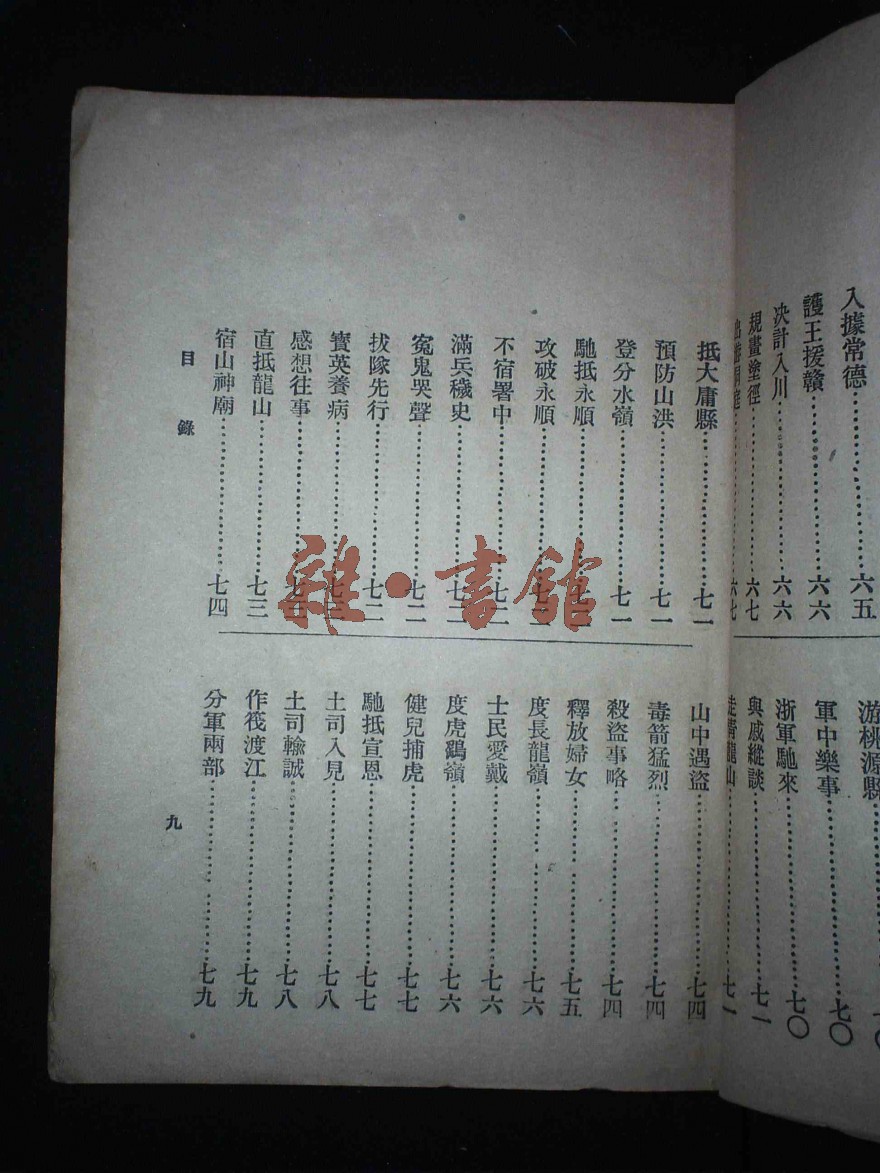 入據常德……六五
護王援贛……六六
決計入川……六六
規畫塗徑……六七
洞庭……六七
游桃源縣……
軍中樂事……七〇
浙軍馳來……七〇
與戚縱談……七一
青龍山……七一
抵大庸縣……七一
預防山洪……七一
登分水嶺……七一
馳抵永順……
攻破永順……
不宿署中……
滿兵穢史……七二
冤鬼哭聲……七二
拔隊先行……七二
寶英養病……
感想往事……
直抵龍山……七三
宿山神廟……七四
山中遇盜……七四
毒箭猛烈……七四
殺盜事略……七四
釋放婦女……七五
度長龍嶺……七六
士民愛戴……七六
度虎鷂嶺……七六
健兒捕虎……七七
馳抵宣恩……七七
土司入見……七八
土司輸誠……七八
作筏渡江……七九
分軍兩部……七九
目錄
九
雜·書館